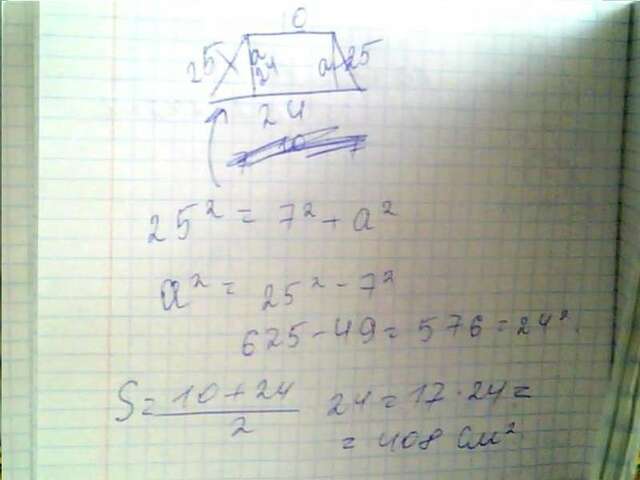 10
25 a a 25
24
24
25² = 7² + a²
a² = 25² - 7²
625 - 49 = 576 = 24²
S = 10 + 24 / 2 24 = 17 · 24 =
= 408 см²